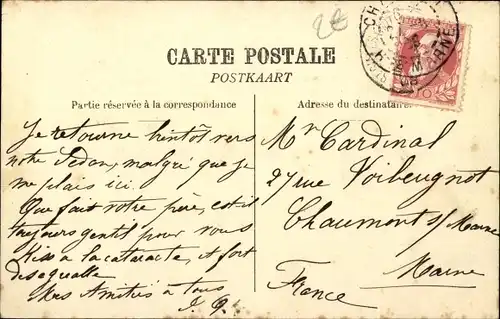 2€
CARTE POSTALE
POSTKAART
Partie réservée à la correspondance
Adresse du destinataire
Je retourne bientôt vers
notre Sedan, malgré que je
me plais ici.
Que fait votre père, est il
toujours gentil pour vous
à la cataracte, et fort
Mes Amitiés à tous
J. Q.
Mr Cardinal
27 rue Voibeugnot
Chaumont s/ Marne
Marne
France